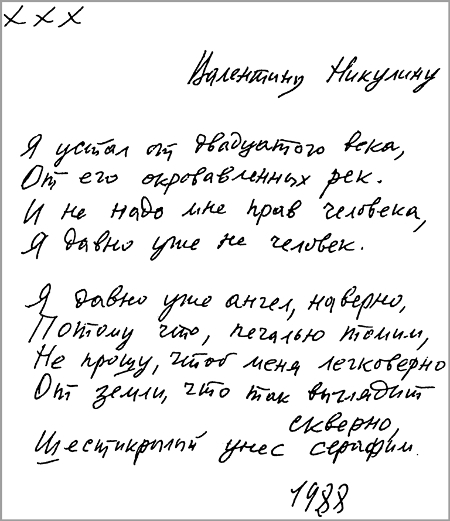 ххх
Валентину Никулину
Я устал от двадцатого века,
От его окровавленных рек.
И не надо мне прав человека,
Я давно уже не человек.
Я давно уже ангел, наверно,
Потому что, печалью томим,
Не прошу, чтоб меня легковерно
От земли, что так выглядит
скверно,
Шестикрылый унес серафим.
1988